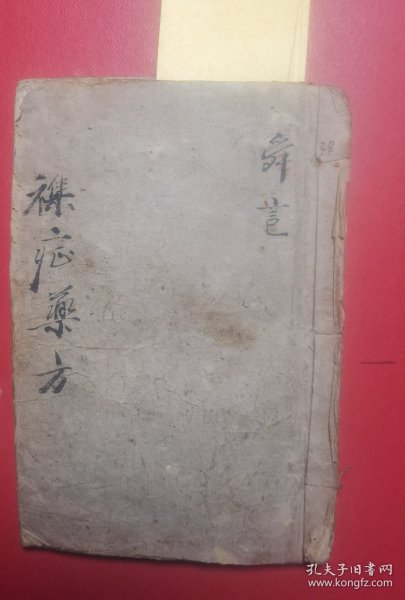 舜
38
襍症藥方
孔夫子旧书网
www.kongfz.com